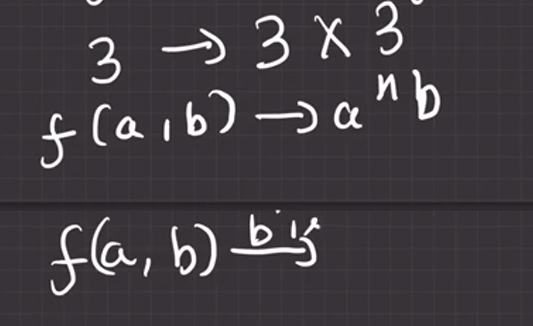 3 → 3 × 3
f(a, b) → aⁿb
f(a, b) bij